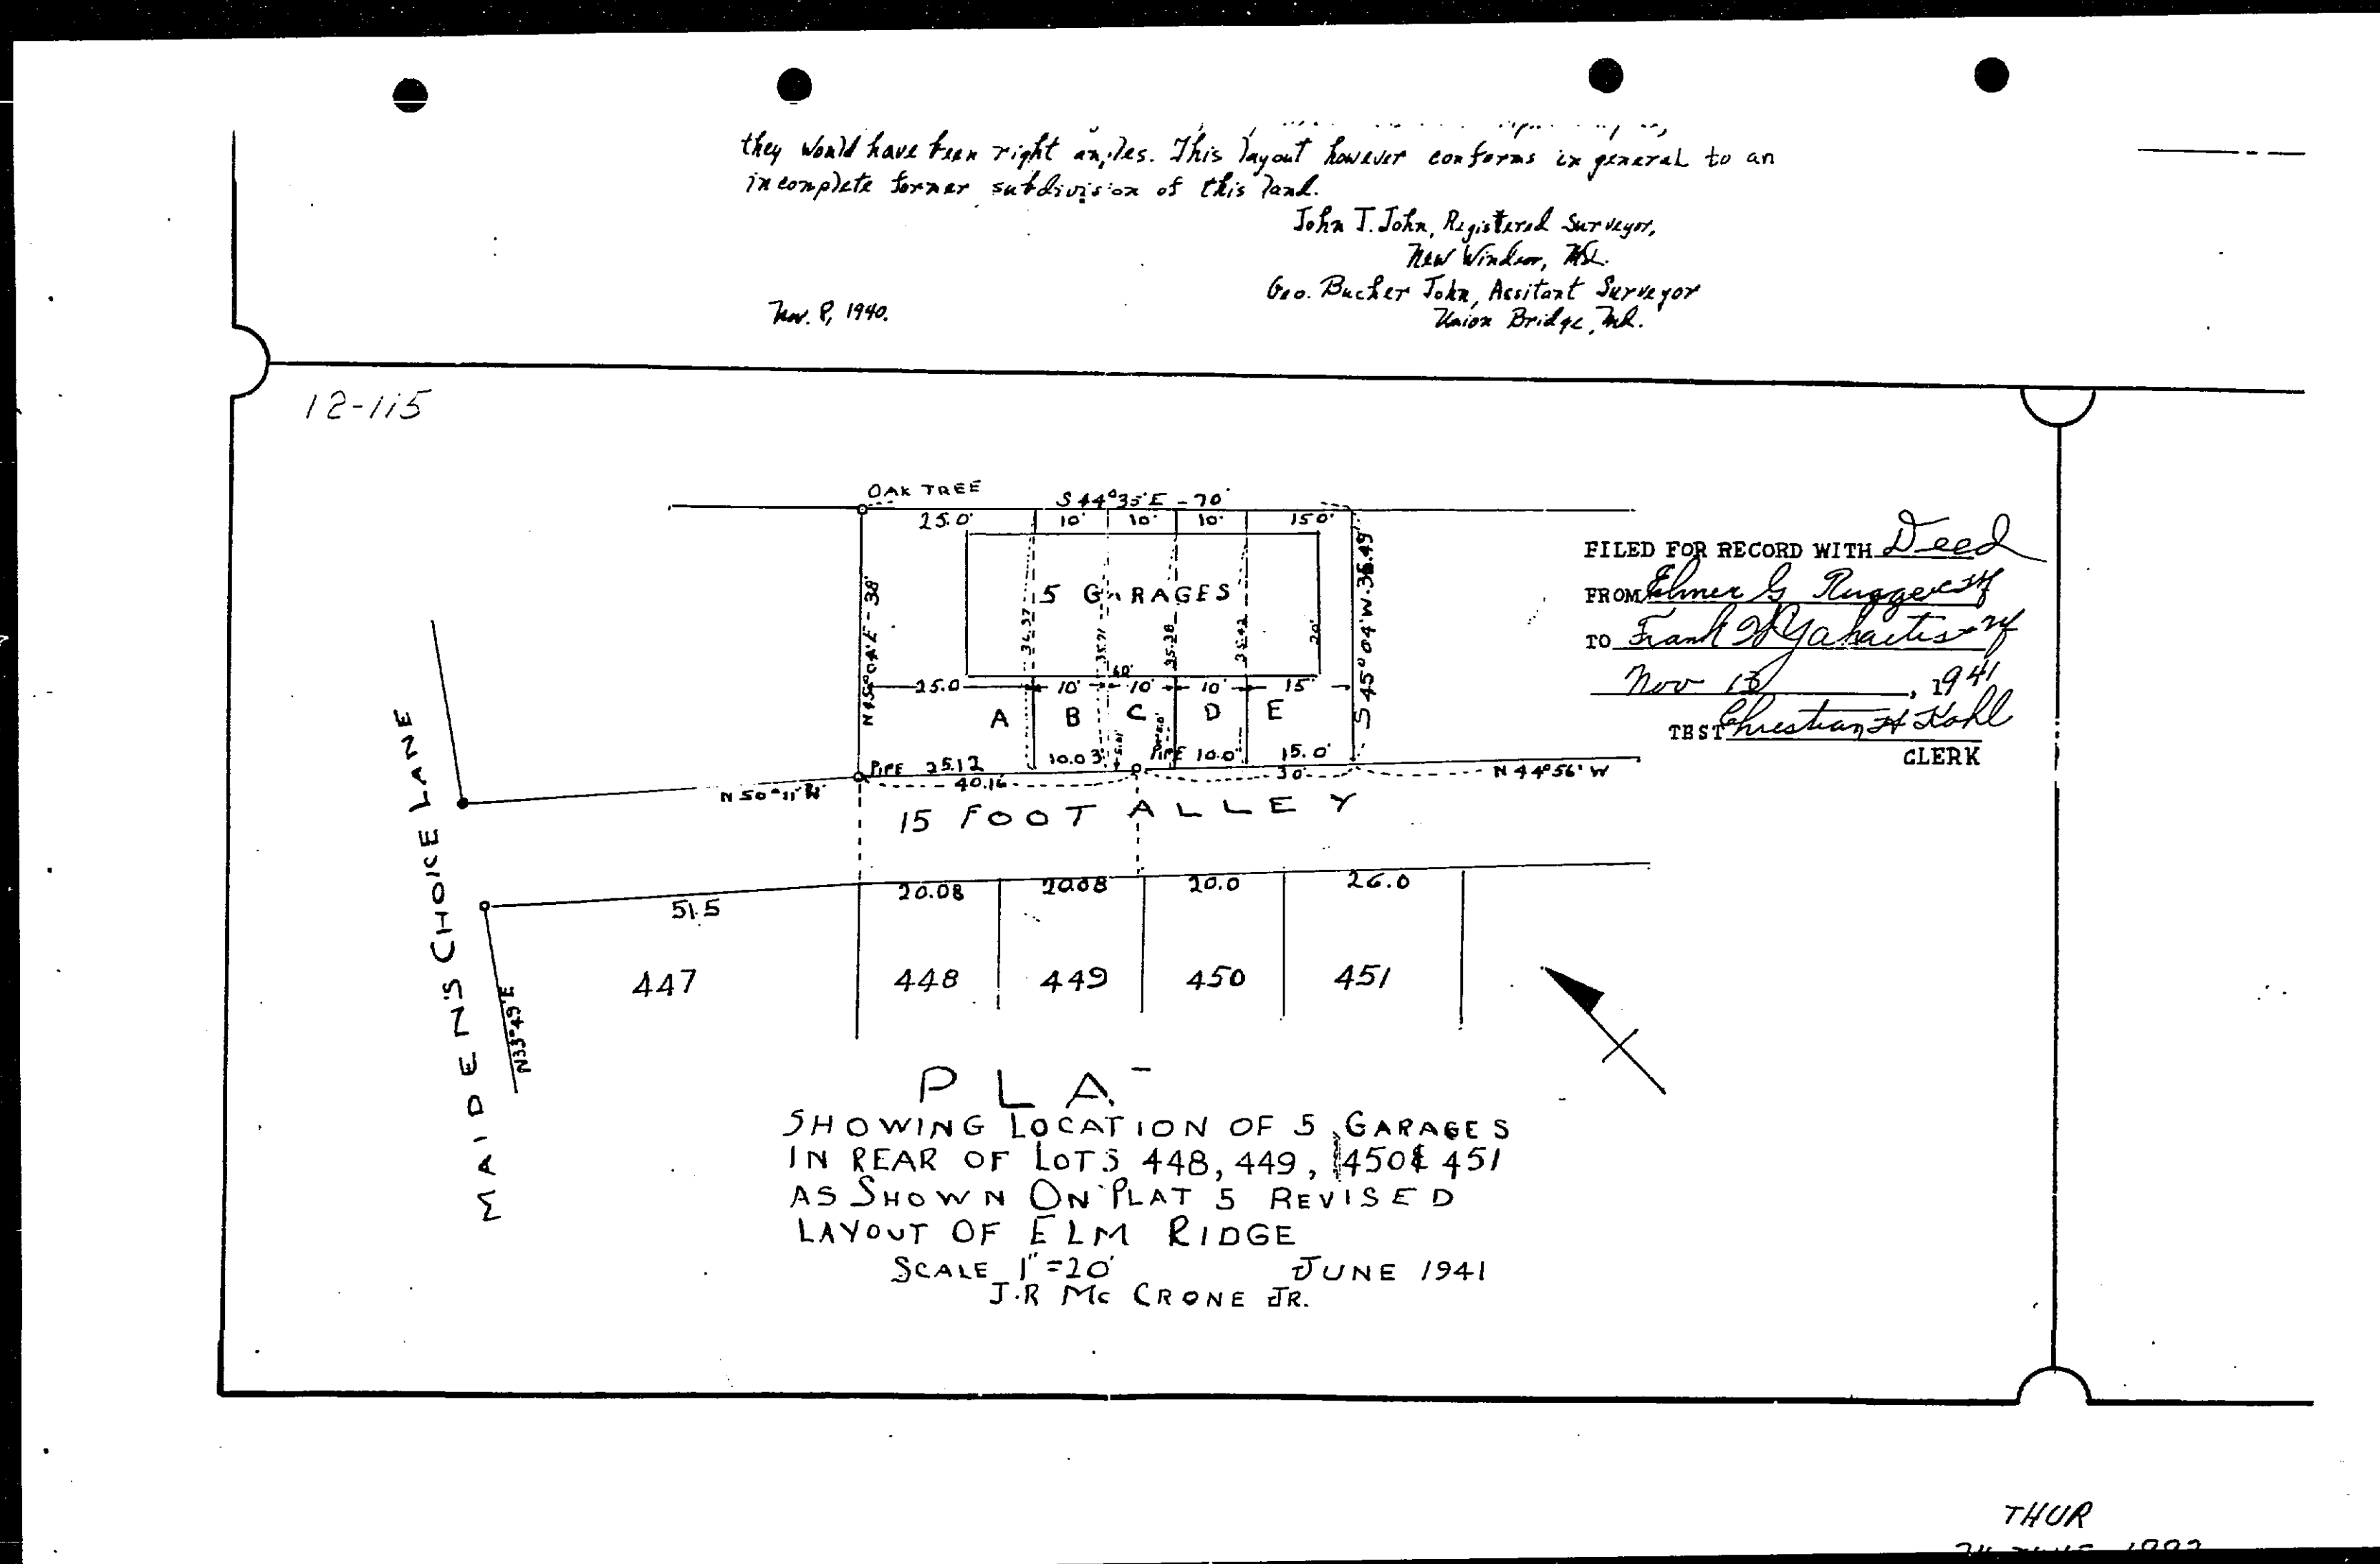 they would have been right angles. This layout however conforms in general to an
incomplete former subdivision of this land.
John T. John, Registered Surveyor,
New Windsor, Md.
Geo. Bucher John, Assitant Surveyor
Union Bridge, Md.
Nov. 8, 1940.
12-115
OAK TREE
S 44°35'E - 70'
25.0' 10' 10' 10' 15.0'
5 GARAGES
N 45°04'E - 38'
35.71
35.38
35.42
20'
S 45°04'W - 35.49
60'
25.0 10' 10' 10' 15'
A B C D E
PIPE 25.12 10.03 PIPE 10.0' 15.0'
N 50°11'W 40.16 30' N 44°56'W
15 FOOT ALLEY
MAIDEN'S CHOICE LANE
N33°49'E
51.5 20.08 20.08 20.0 26.0
447 448 449 450 451
FILED FOR RECORD WITH Deed
FROM Elmer G
TO Frank
Nov 13, 1941
TEST Christian H Kahl
CLERK
PLAT
SHOWING LOCATION OF 5 GARAGES
IN REAR OF LOTS 448, 449, 450 & 451
AS SHOWN ON PLAT 5 REVISED
LAYOUT OF ELM RIDGE
SCALE 1"=20' JUNE 1941
J.R Mc CRONE JR.
THUR